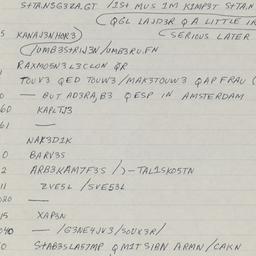 S+TANSG3ZA.GT /1S+ MUS IM KIMP3T S+TAN
(QGL LAJD3R Q A LITTLE
5 KANAJ3NHOR3) (SERIOUS LATER
(/OMB3S+RIJ3N/OMB3RU.FN
RAXMOSN3L3CLON QR
TOUV3 QED TOUW3/MAK3TOUW3 QAP FRAU (
0 — BUT AD3RA,B3 QESP IN AMSTERDAM
60 KAPLTJ3
61 —
NAK3D1K
0 BARV3S
2 ARB3KAM7F3S /)-TAL1SKOSTN
11 ZVESL /SVES3L
020 —
15 XAP3N
040 — /G3NE4JV3/SOUK3R/
0 S+AB3SLAS7MP QM1T SIBN ARMN/CAKN